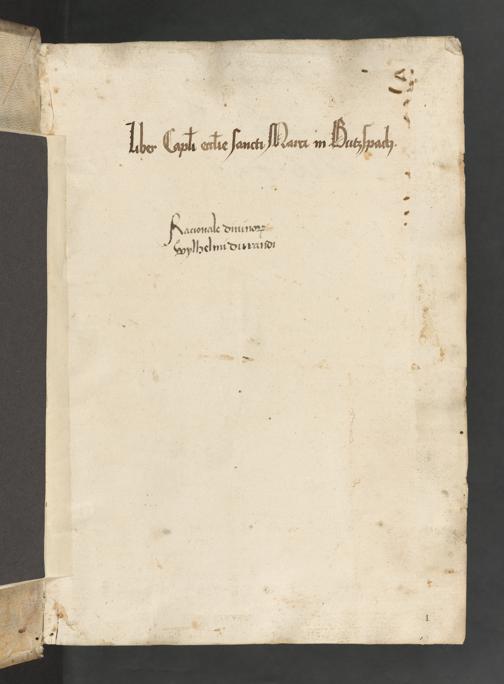 Liber Capli ecclie sancti Marci in Butzspach.
Racionale diuinoꝝ
wylhelmi durandi
1